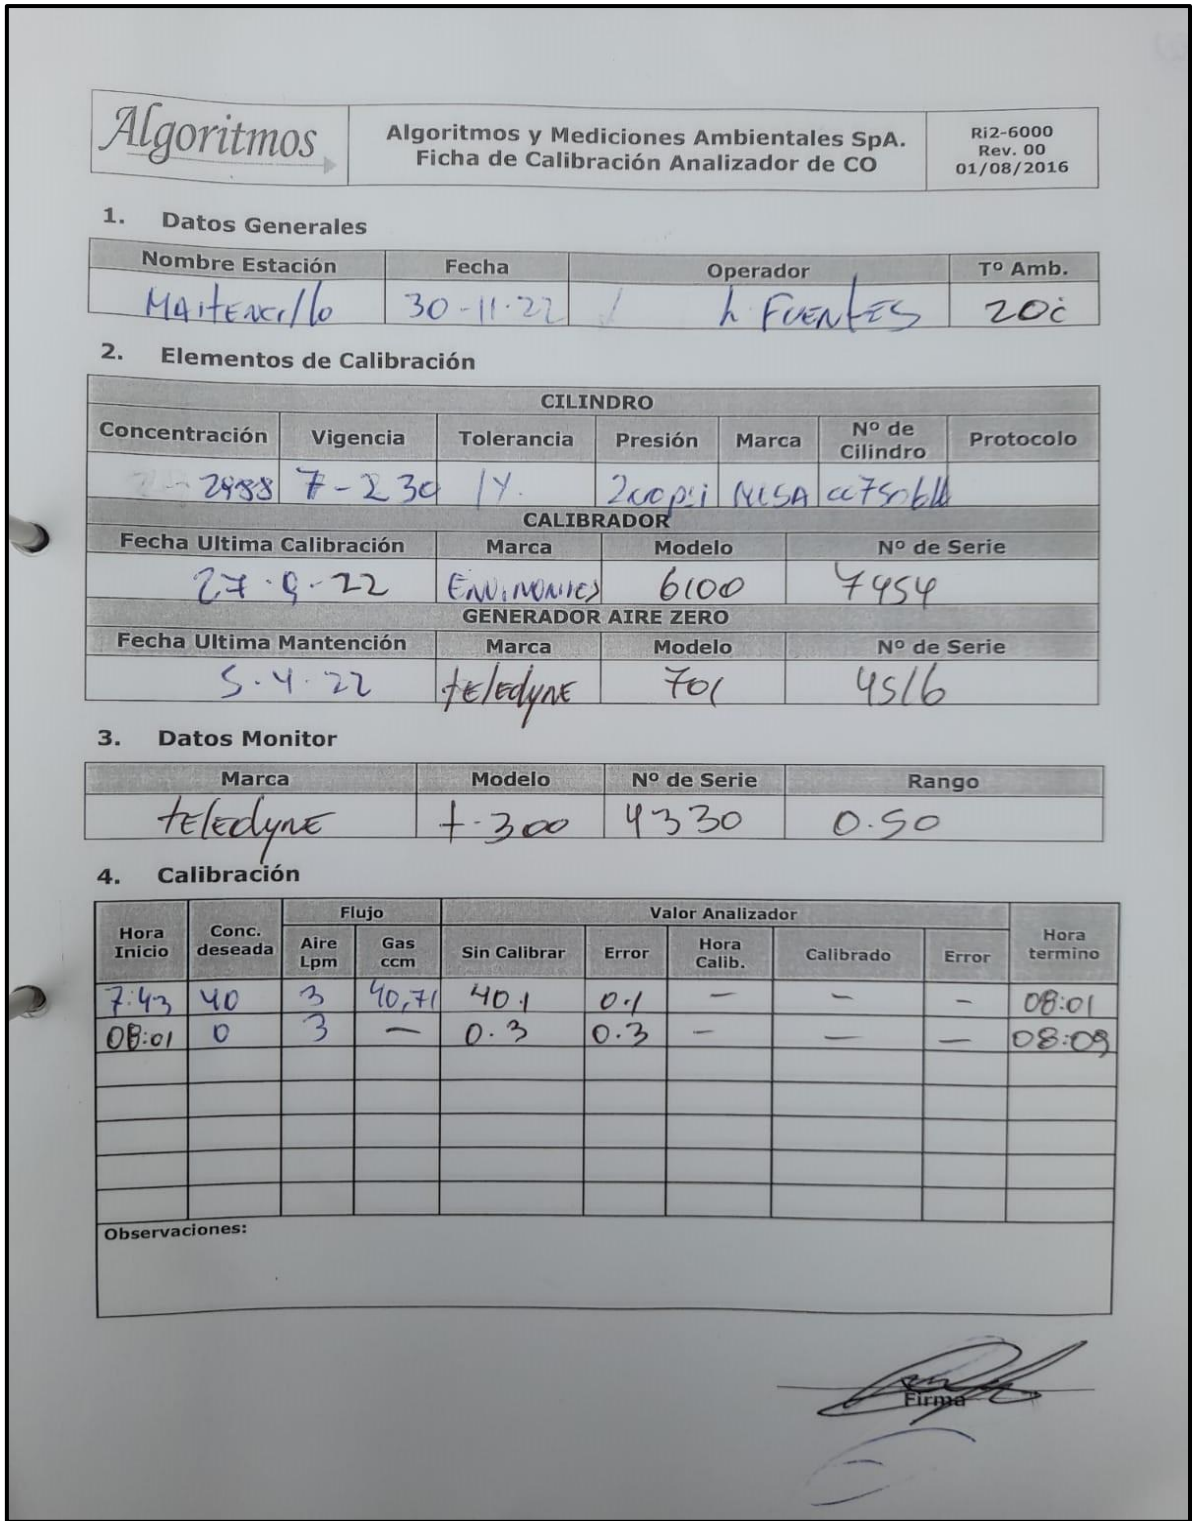 Algoritmos
Algoritmos y Mediciones Ambientales SpA.
Ficha de Calibración Analizador de CO
Ri2-6000
Rev. 00
01/08/2016
1. Datos Generales
Nombre Estación Fecha Operador Tº Amb.
MAITENCIllo 30-11-22 h FUENTES 20c
2. Elementos de Calibración
CILINDRO
Concentración Vigencia Tolerancia Presión Marca Nº de Cilindro Protocolo
2988 7-230 1%. psi
CALIBRADOR
Fecha Ultima Calibración Marca Modelo Nº de Serie
27.9.22 6100 7454
GENERADOR AIRE ZERO
Fecha Ultima Mantención Marca Modelo Nº de Serie
5.4.22 tElEdyNE 701 4516
3. Datos Monitor
Marca Modelo Nº de Serie Rango
tElEdyNE t-300 4330 0.50
4. Calibración
Hora Inicio Conc. deseada Flujo Valor Analizador Hora termino
Aire Lpm Gas ccm Sin Calibrar Error Hora Calib. Calibrado Error
7:43 40 3 40,71 40.1 0.1 — — — 08:01
08:01 0 3 — 0.3 0.3 — — — 08:09
Observaciones:
Firma